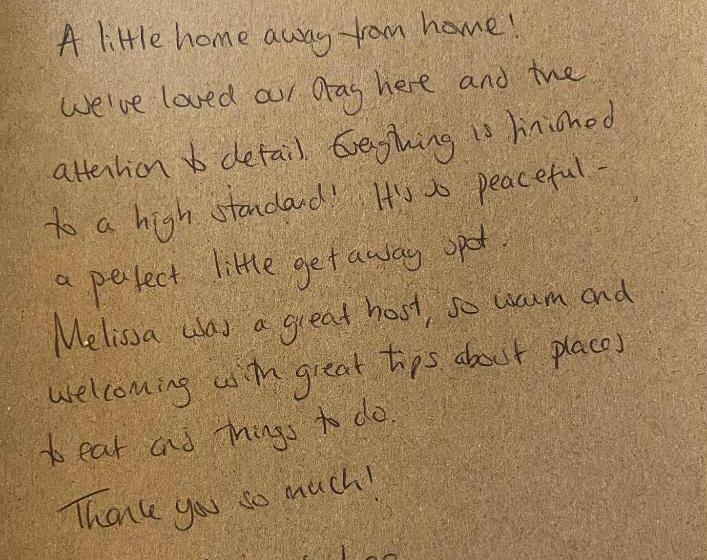 A little home away from home!
We've loved our stay here and the
attention to detail. Everything is finished
to a high standard! It's so peaceful -
a perfect little get away spot.
Melissa was a great host, so warm and
welcoming with great tips about places
to eat and things to do.
Thank you so much!